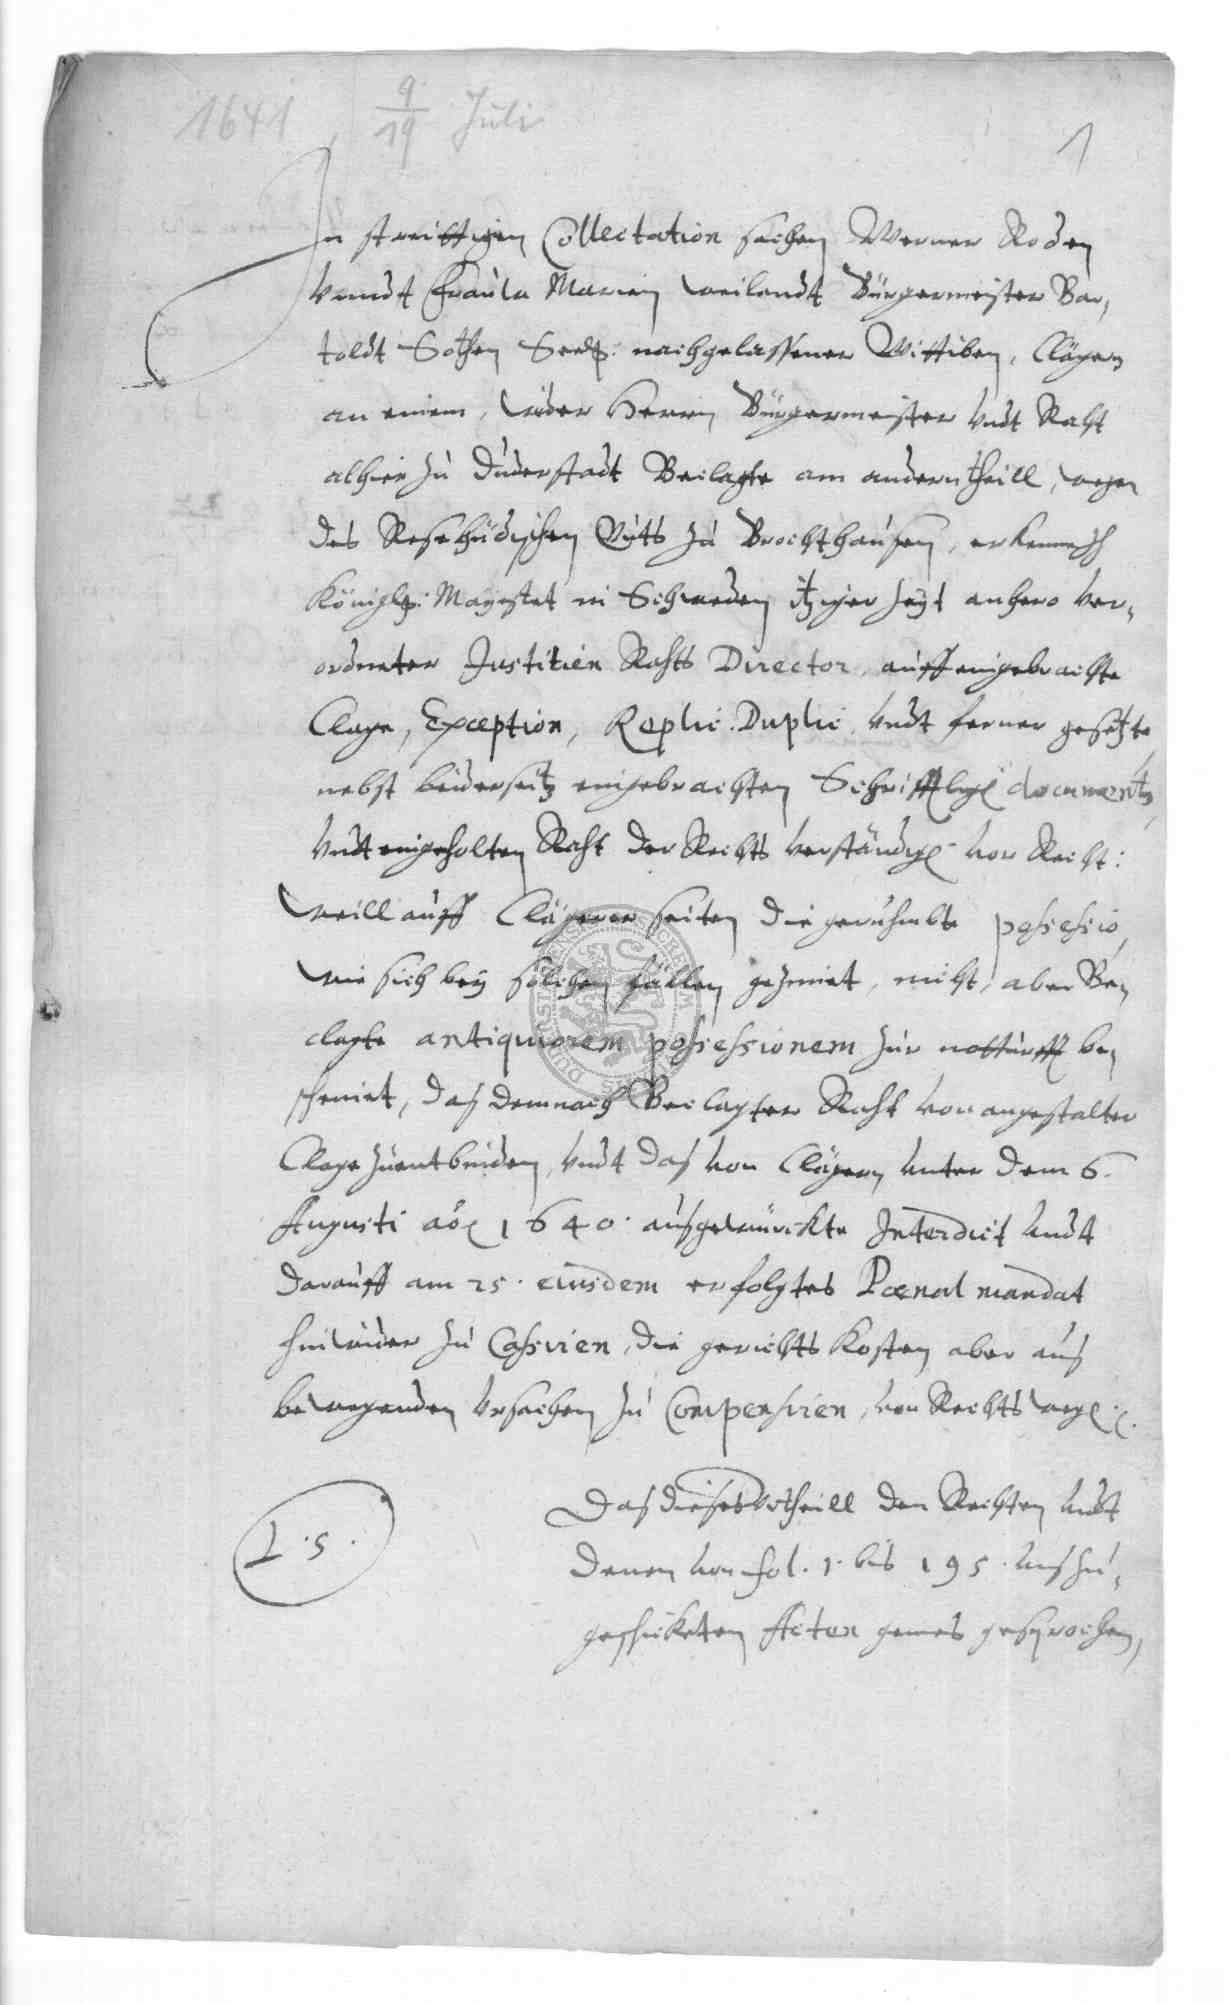 1641 9/19 Juli
1
In streittigen Collectation sachen Werner Roden
vnndt Fräula Marien weilandt Bürgermeister Bar,
toldt Sothen Seel: nachgelassener Wittiben, Clägern
an einem, wider Herrn Bürgermeister vndt Raht
alhier zu Duderstadt Beclagte am anderntheill, wegen
des Resehüdischen Guts zu Brochthausen, erkenne Ich
Königl: Mayestat in Schweden itziger Zeyt anhero ver,
ordneter Justitien Rahts Director, auff eingebrachte
Clage, Exception, Replic. Duplic, vndt ferner gesetzte
nebst beiderseitz eingebrachten Schrifftl: documenten,
vndt eingeholten Raht der Rechts verständig: vor Recht:
Weill auff Clägerer seiten die geruhmbte possessio,
wie sich bey solchen fällen gezimet, nicht, aber Be,
clagte antiquiorem possessionem zur notturfft be,
scheint, das demnach Beclagter Raht von angestalter
Clage zuentbinden, vndt das von Clägern vnter dem 6.
Augusti ao 1640. ausgewürckte Interdict vndt
darauff am 25. eiusdem erfolgtes Pœnal mandat
hinwider zu Cassiren, die gerichts kosten aber aus
bewegenden vrsachen zu Compensiren, von Rechts wegen.
Das dieses vrtheill den Rechten vndt
L. S.
denen von fol. 1. bis 195. vns zu,
geschickten Acten gemes gesprochen,